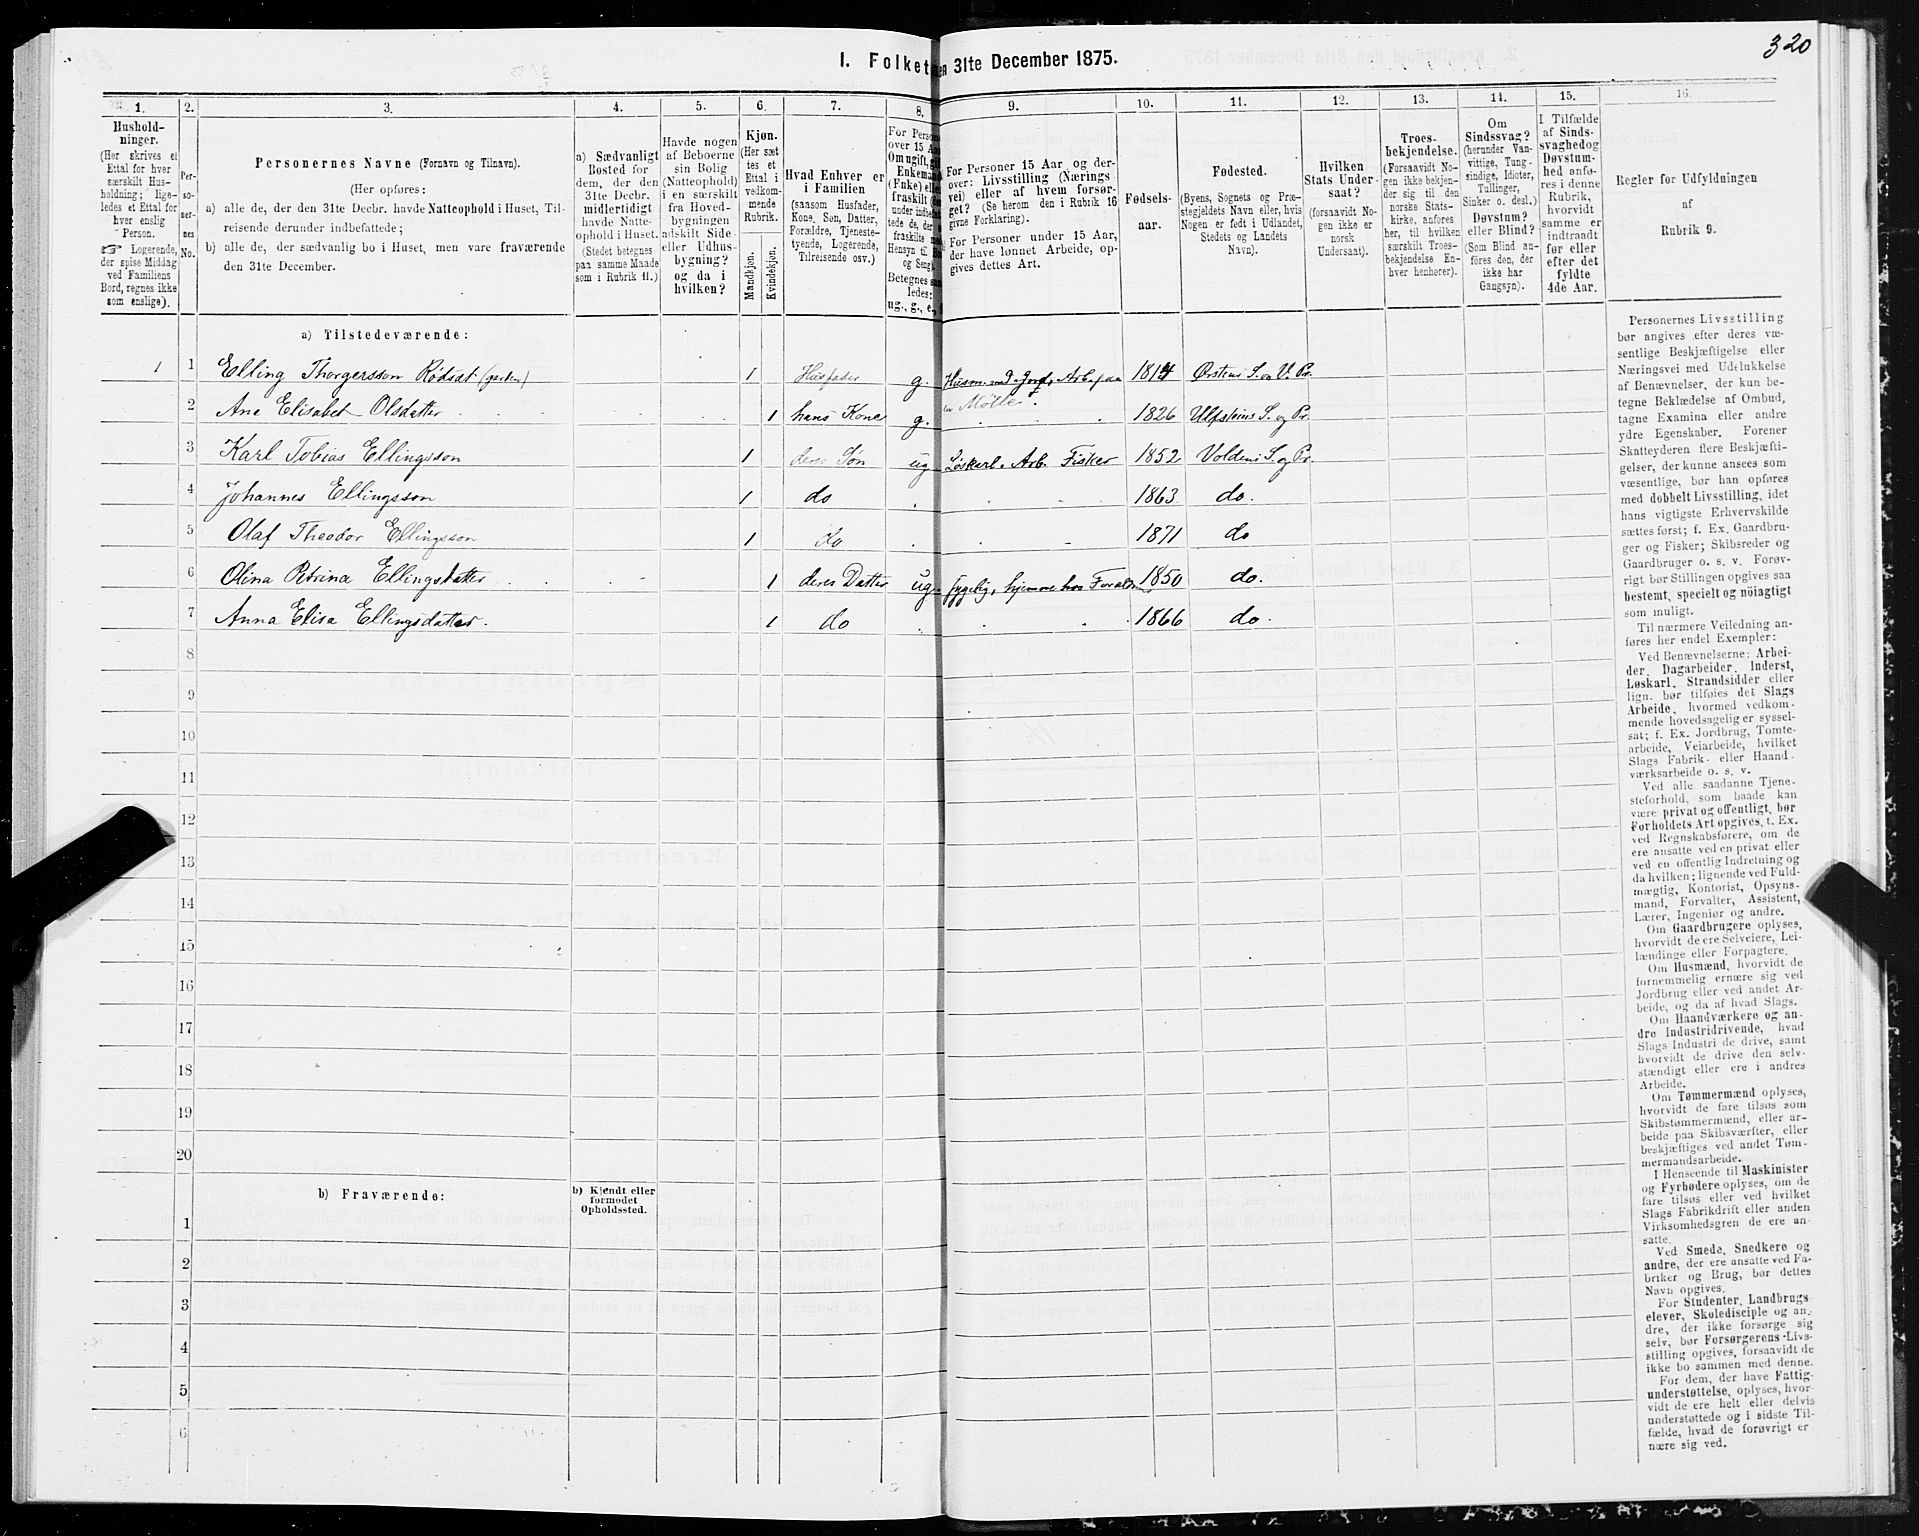 320
1. Folketællingen 31te December 1875.
1. 2. 3. 4. 5. 6. 7. 8. 9. 10. 11. 12. 13. 14. 15. 16.
Hushold-
ninger.
(Her skrives et
Ettal for hver
særskilt Hus-
holdning; lige-
ledes et Ettal for
hver enslig
Person.
☞ Logerende,
der spise Middag
ved Familiens
Bord, regnes ikke
som enslige).
Per-
so-
ner-
nes
No.
Personernes Navne (Fornavn og Tilnavn).
(Her opføres:
a) alle de, der den 31te Decbr. havde Natteophold i Huset, Til-
reisende derunder indbefattede;
b) alle de, der sædvanlig bo i Huset, men vare fraværende
den 31te December.
a) Sædvanligt
Bosted for
dem, der den
31te Decbr.
midlertidigt
havde Natte-
ophold i Huset.
(Stedet betegnes
paa samme Maade
som i Rubrik 11.)
Havde nogen
af Beboerne
sin Bolig
(Natteophold)
i en særskilt
fra Hoved-
bygningen
adskilt Side-
eller Udhus-
bygning?
og da i
hvilken?
Kjøn.
(Her sæt-
tes et
Ettal i
vedkom-
mende
Rubrik.
Mandkjøn.
Kvindekjøn.
Hvad Enhver er
i Familien
(saasom Husfader,
Kone, Søn, Datter,
Forældre, Tjeneste-
tyende, Logerende,
Tilreisende osv.)
For Persone
over 15 Aa
Om ugift, gi
Enkemand
(Enke) elle
fraskilt
under indbe
tede de, der
fraskilte m
Hensyn til
og Seng).
Betegnes saa
ledes:
ug., g., e.,
For Personer 15 Aar og der-
over: Livsstilling (Nærings-
vei) eller af hvem forsør-
get? (Se herom den i Rubrik 16
givne Forklaring).
For Personer under 15 Aar,
der have lønnet Arbeide, op-
gives dettes Art.
Fødsels-
aar.
Fødested.
(Byens, Sognets og Præ-
stegjeldets Navn eller, hvis
Nogen er født i Udlandet,
Stedets og Landets
Navn).
Hvilken
Stats Under-
saat?
(forsaavidt No-
gen ikke er
norsk
Undersaat).
Troes-
bekjendelse.
(Forsaavidt No-
gen ikke bekjen-
der sig til den
norske Stats-
kirke, anføres
her, til hvilken
særskilt Troes-
bekjendelse En-
hver henhører).
Om
Sindssvag?
(herunder Van-
vittige, Tung-
sindige, Idioter,
Tullinger,
Sinker o. desl.)
Døvstum?
eller Blind?
(Som Blind an-
føres den, der
ikke har
Gangsyn).
I Tilfælde
af Sinds-
svaghed og
Døvstum-
hed anfø-
res i denne
Rubrik,
hvorvidt
samme er
indtraadt
før eller
efter det
fyldte
4de Aar.
Regler for Udfyldningen
af
Rubrik 9.
a) Tilstedeværende:
1 1 Elling Thorgersson Rödsæt (gaarden) 1 Husfader g. Husm. med Jord, Arb. paa 1814 Ørstens S. og V. Pr.
en Mølle.
2 Ane Elisabet Olsdatter 1 hans Kone g. 1826 Ulfsteins S. og Pr.
3 Karl Tobias Ellingsson 1 deres Søn ug Løskarl. Arb. Fisker 1852 Voldens S. og Pr.
4 Johannes Ellingsson 1 do 1863 do.
5 Olaf Theodor Ellingsson 1 do 1871 do
6 Olina Petrina Ellingsdatter 1 deres Datter ug. sygelig, hjemme hos Foræld. 1850 do.
7 Anna Elisa Ellingsdatter. 1 do 1866 do.
8
9
10
11
12
13
14
15
16
17
18
19
20
b) Fraværende:
b) Kjendt eller
formodet
Opholdssted.
1
2
3
4
5
6
Personernes Livsstilling
bør angives efter deres væ-
sentlige Beskjæftigelse eller
Næringsvei med Udelukkelse
af Benævnelser, der kun be-
tegne Beklædelse af Ombud,
tagne Examina eller andre
ydre Egenskaber. Forener
Skatteyderen flere Beskjæfti-
gelser, der kunne ansees som
væsentlige, bør han opføres
med dobbelt Livsstilling, idet
hans vigtigste Erhvervskilde
sættes først; f. Ex. Gaardbru-
ger og Fisker; Skibsreder og
Gaardbruger o. s. v. Forøv-
rigt bør Stillingen opgives saa
bestemt, specielt og nöiagtigt
som muligt.
Til nærmere Veiledning an-
føres her endel Exempler:
Ved Benævnelserne: Arbei-
der, Dagarbeider, Inderst,
Løskarl, Strandsidder eller
lign. bør tilføies det Slags
Arbeide, hvormed vedkom-
mende hovedsagelig er syssel-
sat; f. Ex. Jordbrug, Tomte-
arbeide, Veiarbeide, hvilket
Slags Fabrik- eller Haand-
værksarbeide o. s. v.
Ved alle saadanne Tjene-
steforhold, som baade kan
være privat og offentligt, bør
Forholdets Art opgives, t. Ex.
ved Regnskabsførere, om de
ere ansatte ved en privat eller
ved en offentlig Indretning og
da hvilken; lignende ved Fuld-
mægtig, Kontorist, Opsyns-
mand, Forvalter, Assistent,
Lærer, Ingeniør og andre.
Om Gaardbrugere oplyses,
hvorvidt de ere Selveiere, Lei-
lændinge eller Forpagtere.
Om Husmænd, hvorvidt de
fornemmelig ernære sig ved
Jordbrug eller ved andet Ar-
beide, og da af hvad Slags.
Om Haandværkere og an-
dre Industridrivende, hvad
Slags Industri de drive, samt
hvorvidt de drive den selv-
stændigt eller ere i andres
Arbeide.
Om Tømmermænd oplyses,
hvorvidt de fare tilsøs som
Skibstømmermænd, eller ar-
beide paa Skibsværfter, eller
beskjæftiges ved andet Tøm-
mermandsarbeide.
I Henseende til Maskinister
og Fyrbødere oplyses, om de
fare tilsøs eller ved hvilket
Slags Fabrikdrift eller anden
Virksomhedsgren de ere an-
satte.
Ved Smede, Snedkere og
andre, der ere ansatte ved Fa-
briker og Brug, bør dettes
Navn opgives.
For Studenter, Landbrugs-
elever, Skoledisciple og an-
dre, der ikke forsørge sig
selv, bør Forsørgerens Livs-
stilling opgives, forsaavidt de
ikke bo sammen med denne.
For dem, der have Fattig-
understøttelse, oplyses, hvor-
vidt de ere helt eller delvis
understøttede og i sidste Til-
fælde, hvad de forøvrigt er-
nære sig ved.